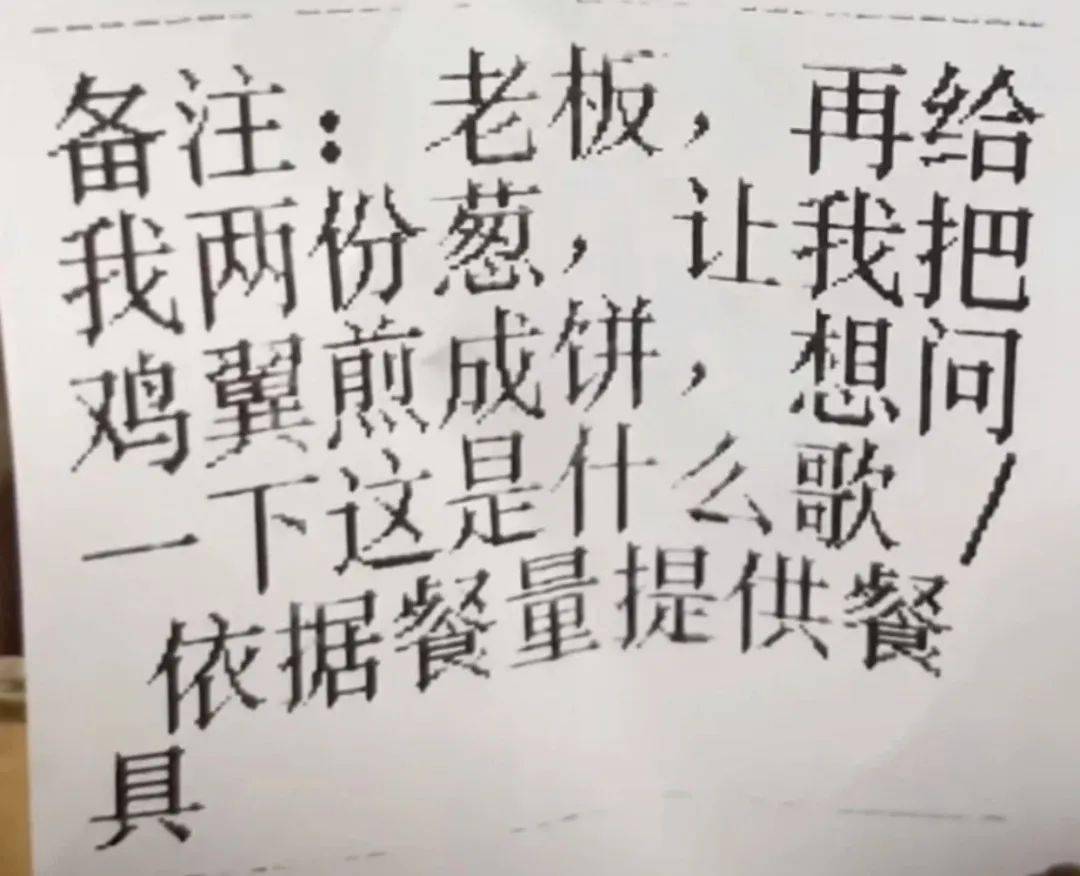 备注：老板，再给
我两份葱，让我把
鸡翼煎成饼，想问
一下这是什么歌/
依据餐量提供餐
具